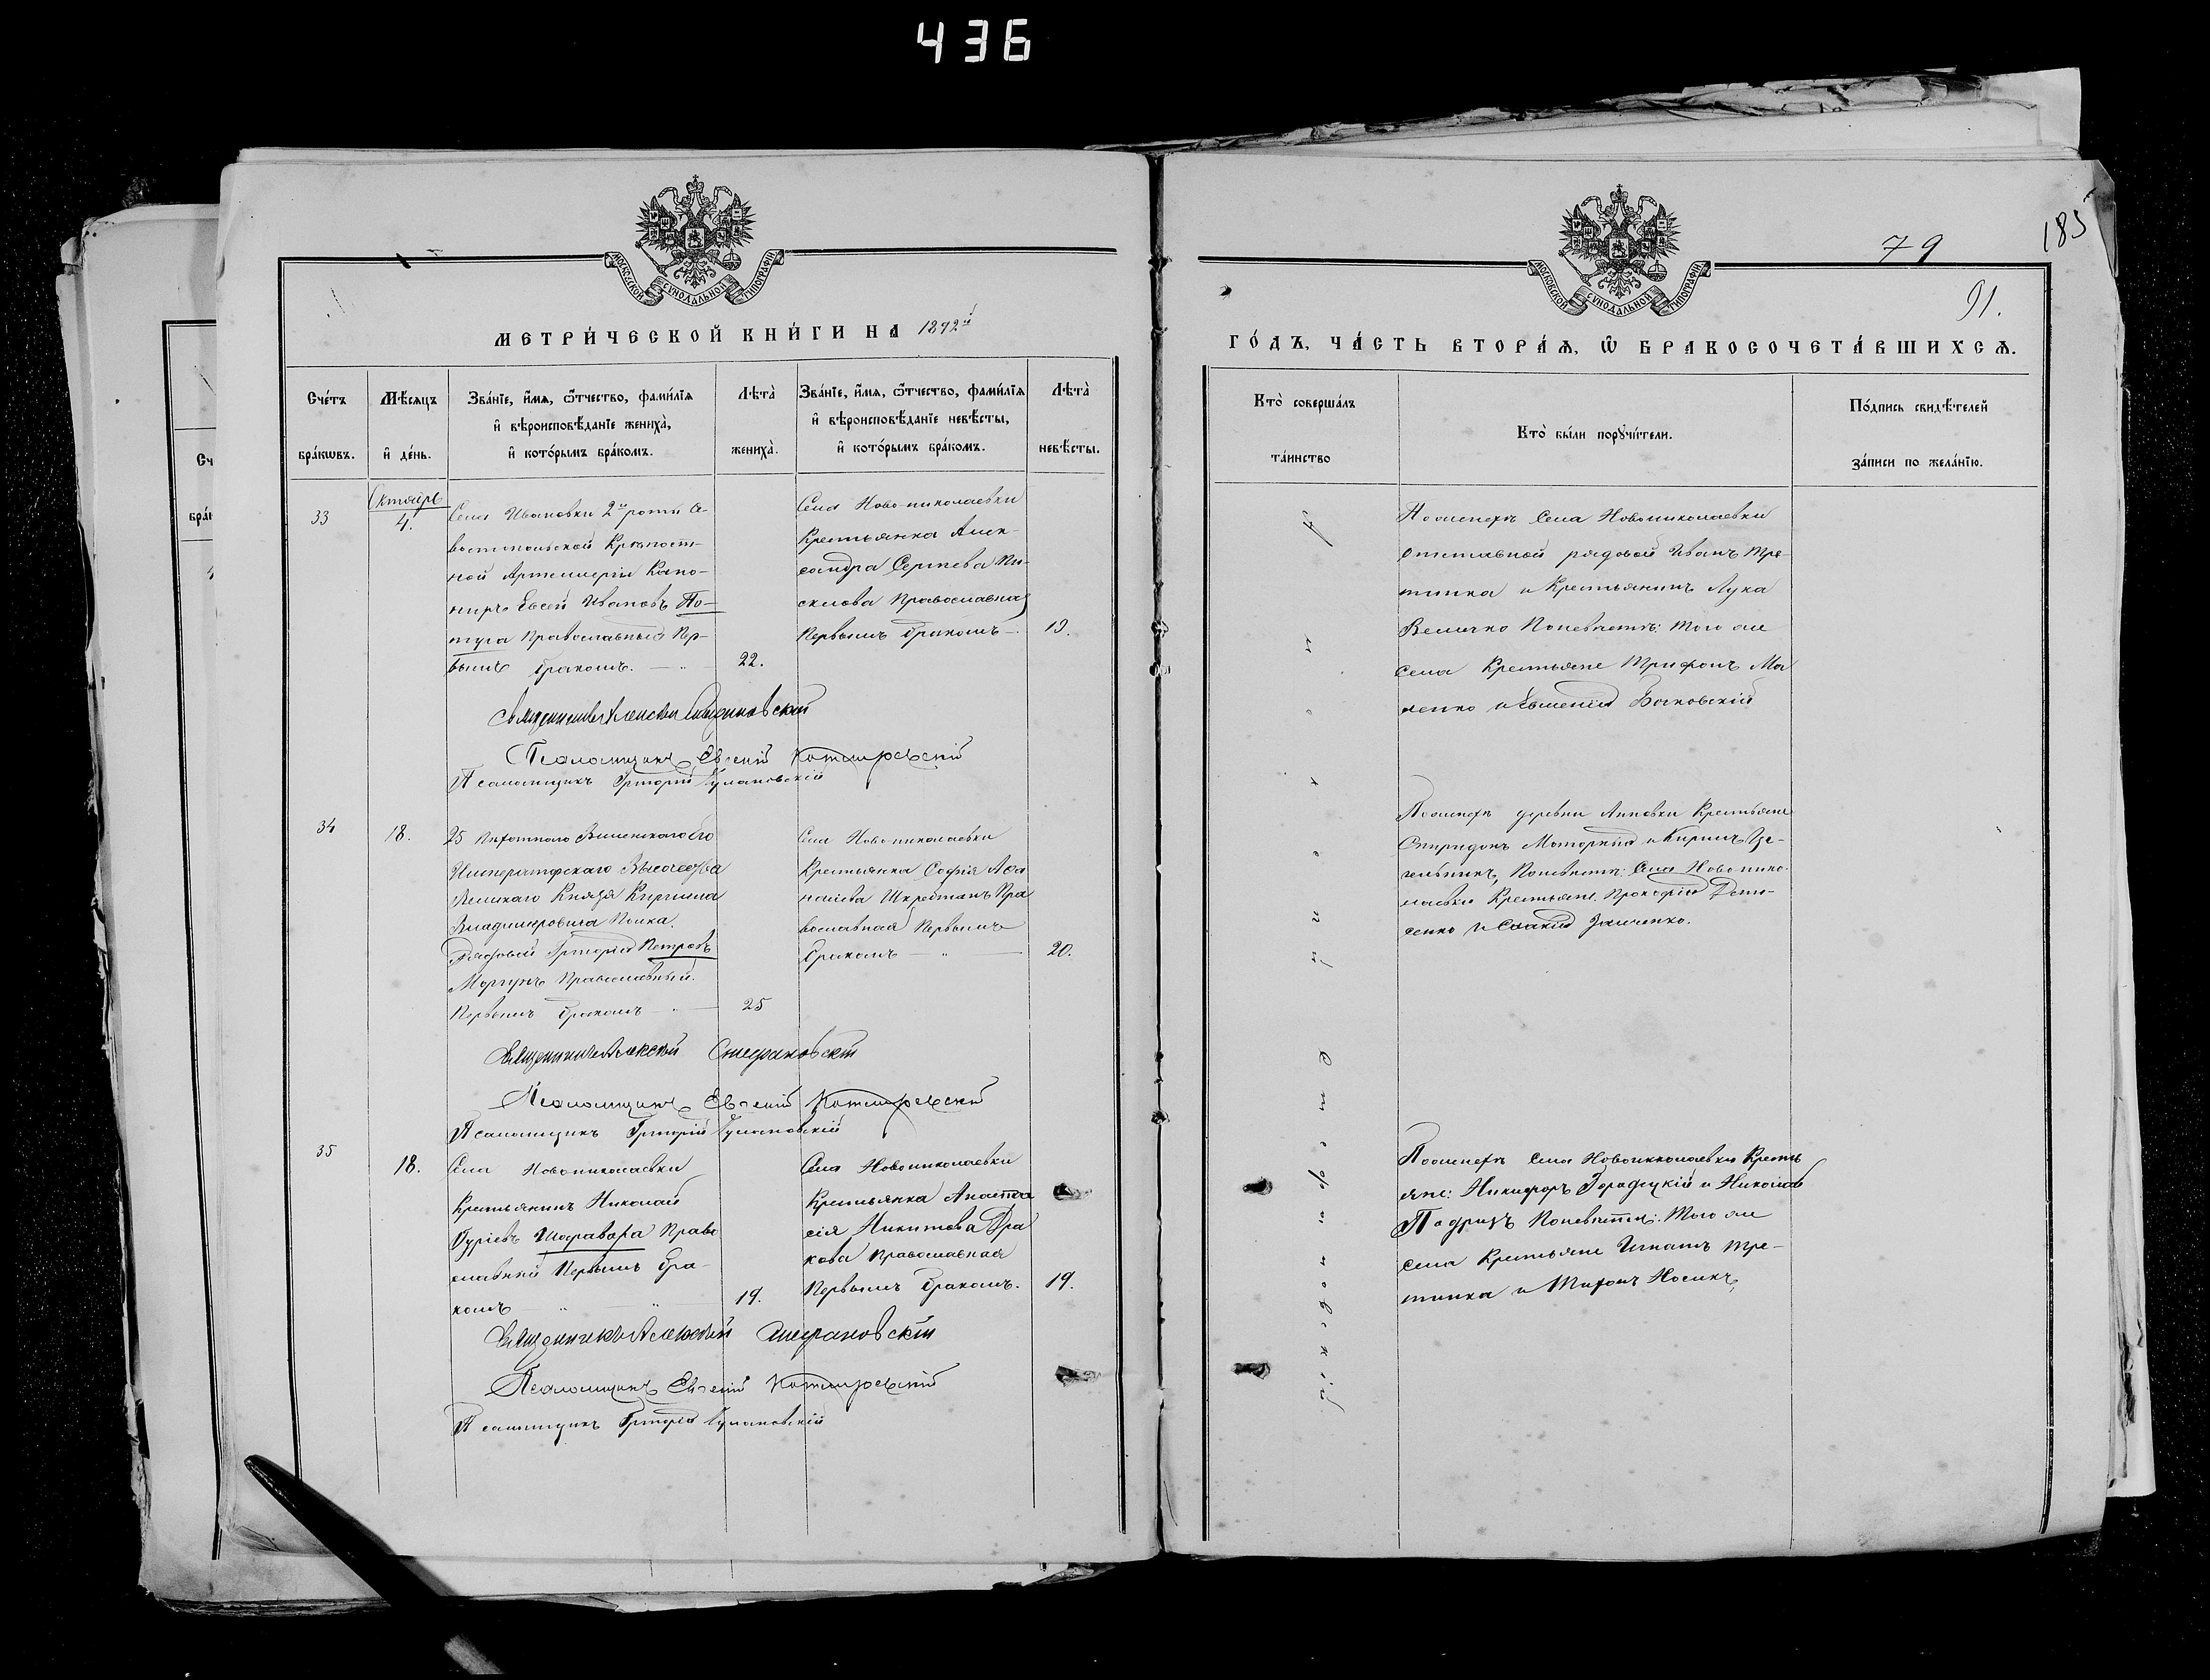 436
МОСКОВСКОЙ СѴНОДАЛЬНОЙ ТИПОГРАФІИ
МЕТРИ́ЧЕСКОЙ КНИ́ГИ НА 1892й
Сче́тъ бра́кωвъ.
Мѣ́сяцъ и҆ де́нь.
Зва́нїе, и҆́мѧ, ѻ҆́тчество, фами́лїѧ
и҆ вѣроисповѣ́данїе жениха̀,
и҆ кото́рымъ бра́комъ.
Лѣта̀ жениха̀.
Зва́нїе, и҆́мѧ, ѻ҆́тчество, фами́лїѧ
и҆ вѣроисповѣ́данїе невѣ́сты,
и҆ кото́рымъ бра́комъ.
Лѣта̀ невѣ́сты.
33
Октябрь
4.
Села Ивановки 2й роты Се-
вастопольской Крѣпост-
ной Артиллеріи Кано-
ниръ Евсей Ивановъ По-
туга Православный Пер-
вымъ бракомъ. — " —
22.
Села Новониколаевки
Крестьянка Алек-
сандра Сергѣева
Православная
Первымъ бракомъ —
19.
Священникъ Алексѣй Стефановскій
Псаломщикъ Евгеній
Псаломщикъ Григорій
34
18.
25 Пѣхотнаго Его
Императорскаго Высочества
Великаго Князя Кирилла
Владиміровича Полка.
Рядовый Григорій Петровъ
Моргунъ Православный.
Первымъ бракомъ — " —
25
Села Новониколаевки
Крестьянка Софія Афа
насіева Пра
вославная Первымъ
бракомъ — " —
20.
Священникъ Алексѣй Стефановскій
Псаломщикъ Евгеній
Псаломщикъ Григорій
35
18.
Села Новониколаевки
Крестьянинъ Николай
Гуріевъ Шаравара Право
славный Первымъ бра-
комъ — " — " —
19.
Села Новониколаевки
Крестьянка Анаста
сія Никитова Дра
кова Православная
Первымъ бракомъ.
19.
Священникъ Алексѣй Стефановскій
Псаломщикъ Евгеній
Псаломщикъ Григорій
79
185
91.
МОСКОВСКОЙ СѴНОДАЛЬНОЙ ТИПОГРАФІИ
ГО́ДЪ, ЧА́СТЬ ВТОРА́Ѧ, Ѽ БРАКОСОЧЕТА́ВШИХСѦ.
Кто̀ соверша́лъ та́инство
Кто̀ бы́ли порꙋчи́тели.
По́дпись свидѣ́телей
за́писи по жела́нїю.
По женихѣ Села Новониколаевки
отставной рядовой Иванъ Тре-
тинка и Крестьянинъ Лука
Величко По невѣстѣ: того же
Села Крестьяне Трифонъ Ма
Бачковскій
По женихѣ деревни Анновки Крестьяне
Спиридонъ Моторный и Кириллъ
По невѣстѣ: Села Новонико-
лаевки Крестьяне. Прокофій Дени-
сенко и
По женихѣ Села Новониколаевки Кресть
яне: Никифоръ Городецкій и Николай
По невѣстѣ: Того же
села Крестьяне Игнатъ Тре-
тинка и Тихонъ Носикъ